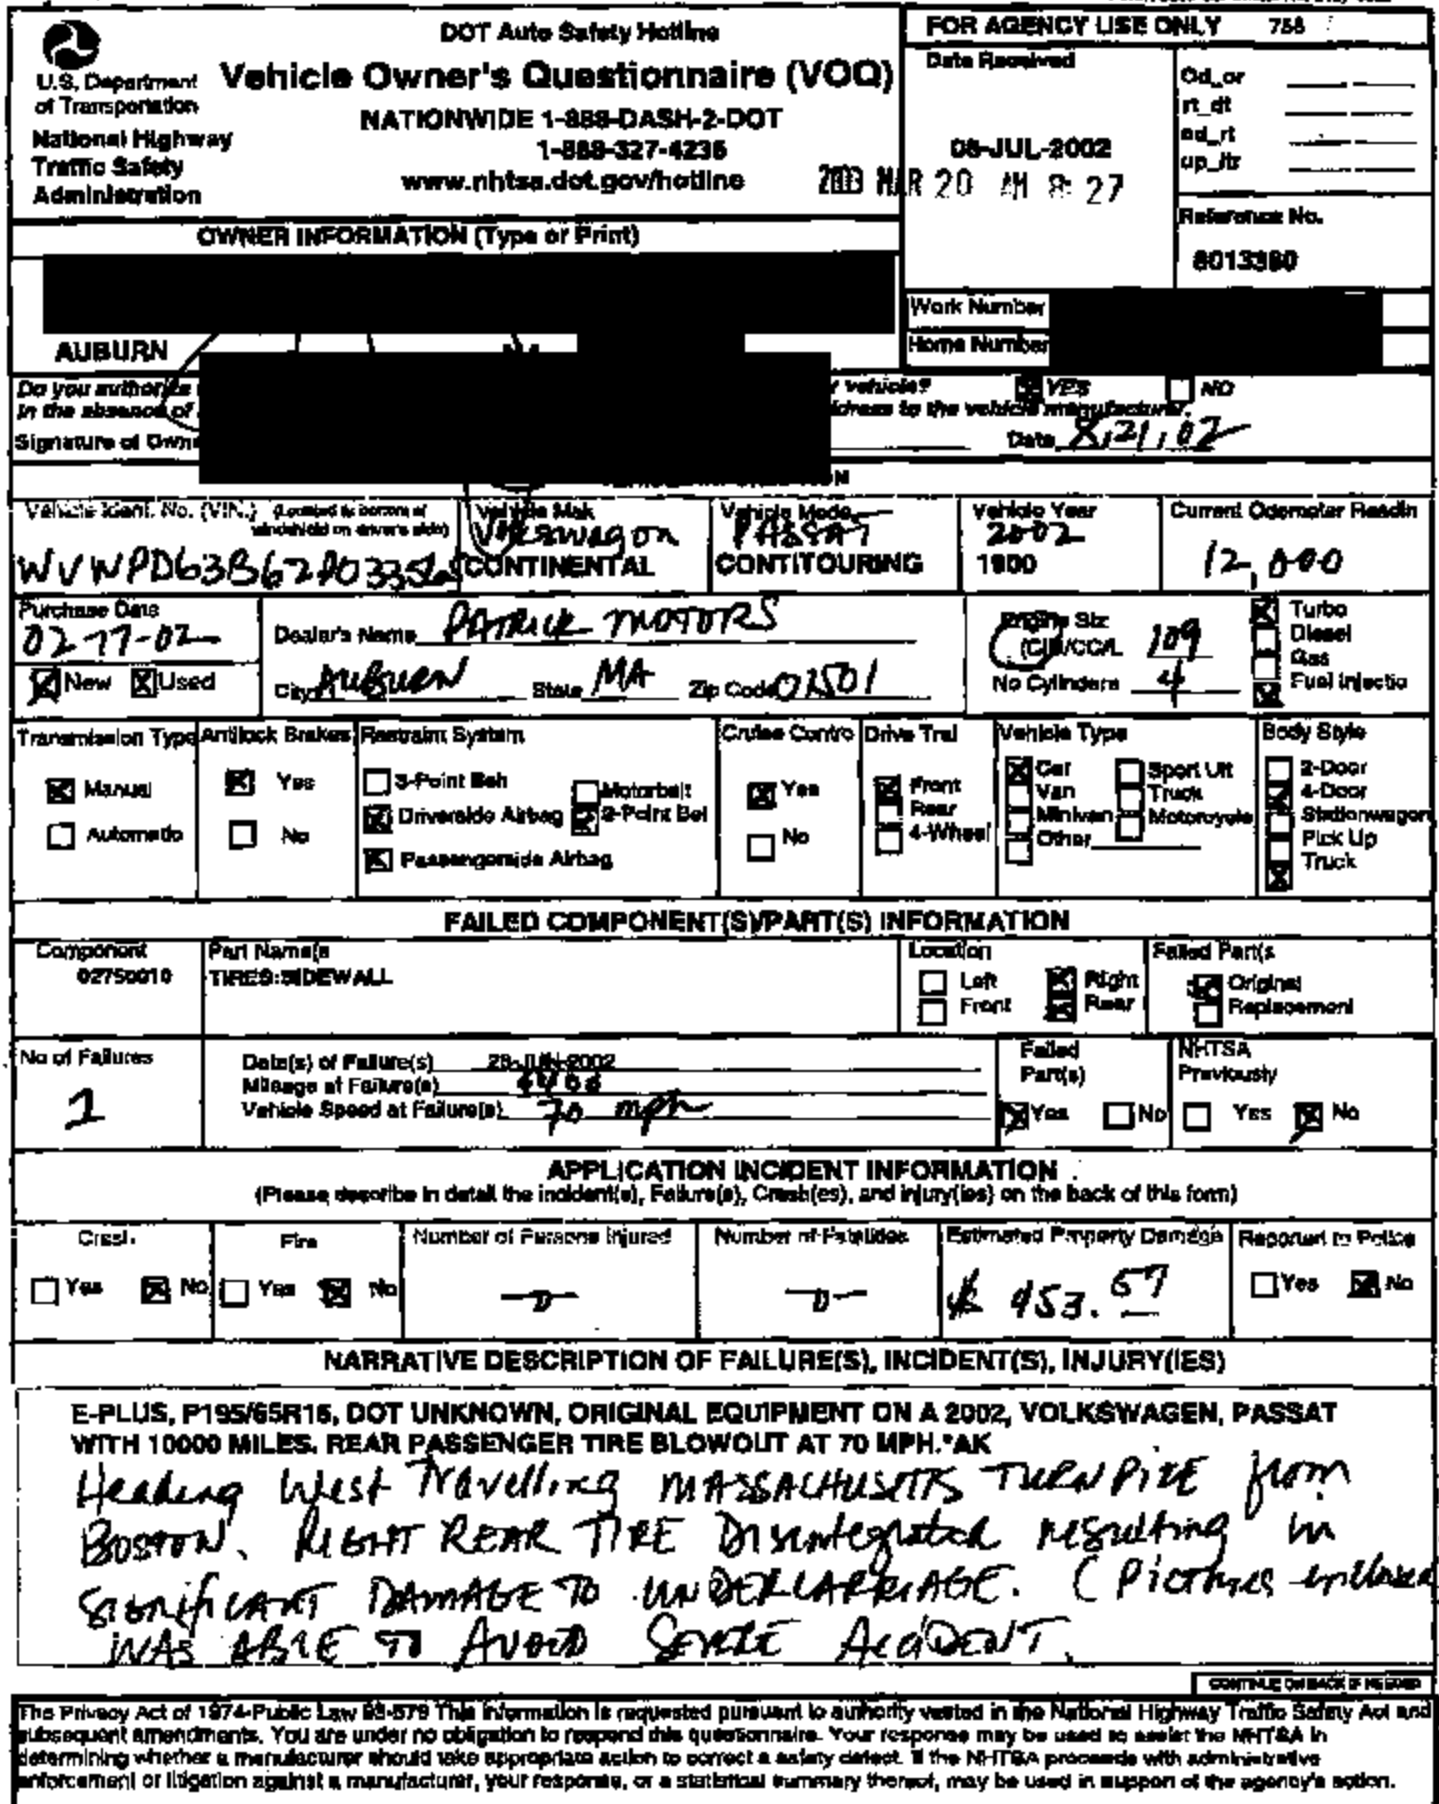 DOT Auto Safety Hotline
Vehicle Owner's Questionnaire (VOQ)
NATIONWIDE 1-888-DASH-2-DOT
1-888-327-4236
www.nhtsa.dot.gov/hotline
U.S. Department
of Transportation
National Highway
Traffic Safety
Administration
FOR AGENCY USE ONLY 758
Date Received
08-JUL-2002
2003 MAR 20 AM 8: 27
Od_or
rt_dt
od_rt
up_ltr
Reference No.
8013380
OWNER INFORMATION (Type or Print)
AUBURN
Work Number
Home Number
Do you authorize vehicle? YES NO
In the absence of address to the vehicle manufacturer.
Signature of Owne Date 8,21,02
Vehicle Ident. No. (VIN.) (Located at bottom of
windshield on driver's side)
Vehicle Mak
Volkswagon
CONTINENTAL
Vehicle Model
PASSAT
CONTITOURING
Vehicle Year
2002
1900
Current Odometer Readin
12,000
Purchase Date
New Used
Dealer's Name PATRICK MOTORS
City AUBURN State MA Zip Code 01501
Engine Siz
(CID/CC/L 109
No Cylinders 4
Turbo
Diesel
Gas
Fuel Injectio
Transmission Type
Manual
Automatic
Antilock Brakes
Yes
No
Restraint System
3-Point Belt
Motorbelt
Driverside Airbag 2-Point Bel
Passengerside Airbag
Cruise Contro
Yes
No
Drive Trai
Front
Rear
4-Wheel
Vehicle Type
Car Sport Utl
Van Truck
Minivan Motorcycle
Other
Body Style
2-Door
4-Door
Stationwagon
Pick Up
Truck
FAILED COMPONENT(S)/PART(S) INFORMATION
Component
02750010
Part Name(s
TIRES:SIDEWALL
Location
Left Right
Front Rear
Failed Part(s
Original
Replacement
No of Failures
1
Date(s) of Failure(s) 28-JUN-2002
Mileage at Failure(s)
Vehicle Speed at Failure(s) 70 mph
Failed
Part(s)
Yes No
NHTSA
Previously
Yes No
APPLICATION INCIDENT INFORMATION
(Please describe in detail the incident(s), Failure(s), Crash(es), and injury(ies) on the back of this form)
Crash
Yes No
Fire
Yes No
Number of Persons Injured
0
Number of Fatalities
0
Estimated Property Damage
$ 953.57
Reported to Police
Yes No
NARRATIVE DESCRIPTION OF FAILURE(S), INCIDENT(S), INJURY(IES)
E-PLUS, P195/65R15, DOT UNKNOWN, ORIGINAL EQUIPMENT ON A 2002, VOLKSWAGEN, PASSAT
WITH 10000 MILES. REAR PASSENGER TIRE BLOWOUT AT 70 MPH.*AK
Heading West Travelling MASSACHUSETTS TURNPIKE from
BOSTON. RIGHT REAR TIRE Disintegrated resulting in
SIGNIFICANT DAMAGE TO UNDERCARRIAGE. (Pictures enclosed
WAS ABLE TO AVOID SEVERE ACCIDENT.
CONTINUE ON BACK IF NEEDED
The Privacy Act of 1974-Public Law 93-579 This information is requested pursuant to authority vested in the National Highway Traffic Safety Act and
subsequent amendments. You are under no obligation to respond this questionnaire. Your response may be used to assist the NHTSA in
determining whether a manufacturer should take appropriate action to correct a safety defect. If the NHTSA proceeds with administrative
enforcement or litigation against a manufacturer, your response, or a statistical summary thereof, may be used in support of the agency's action.